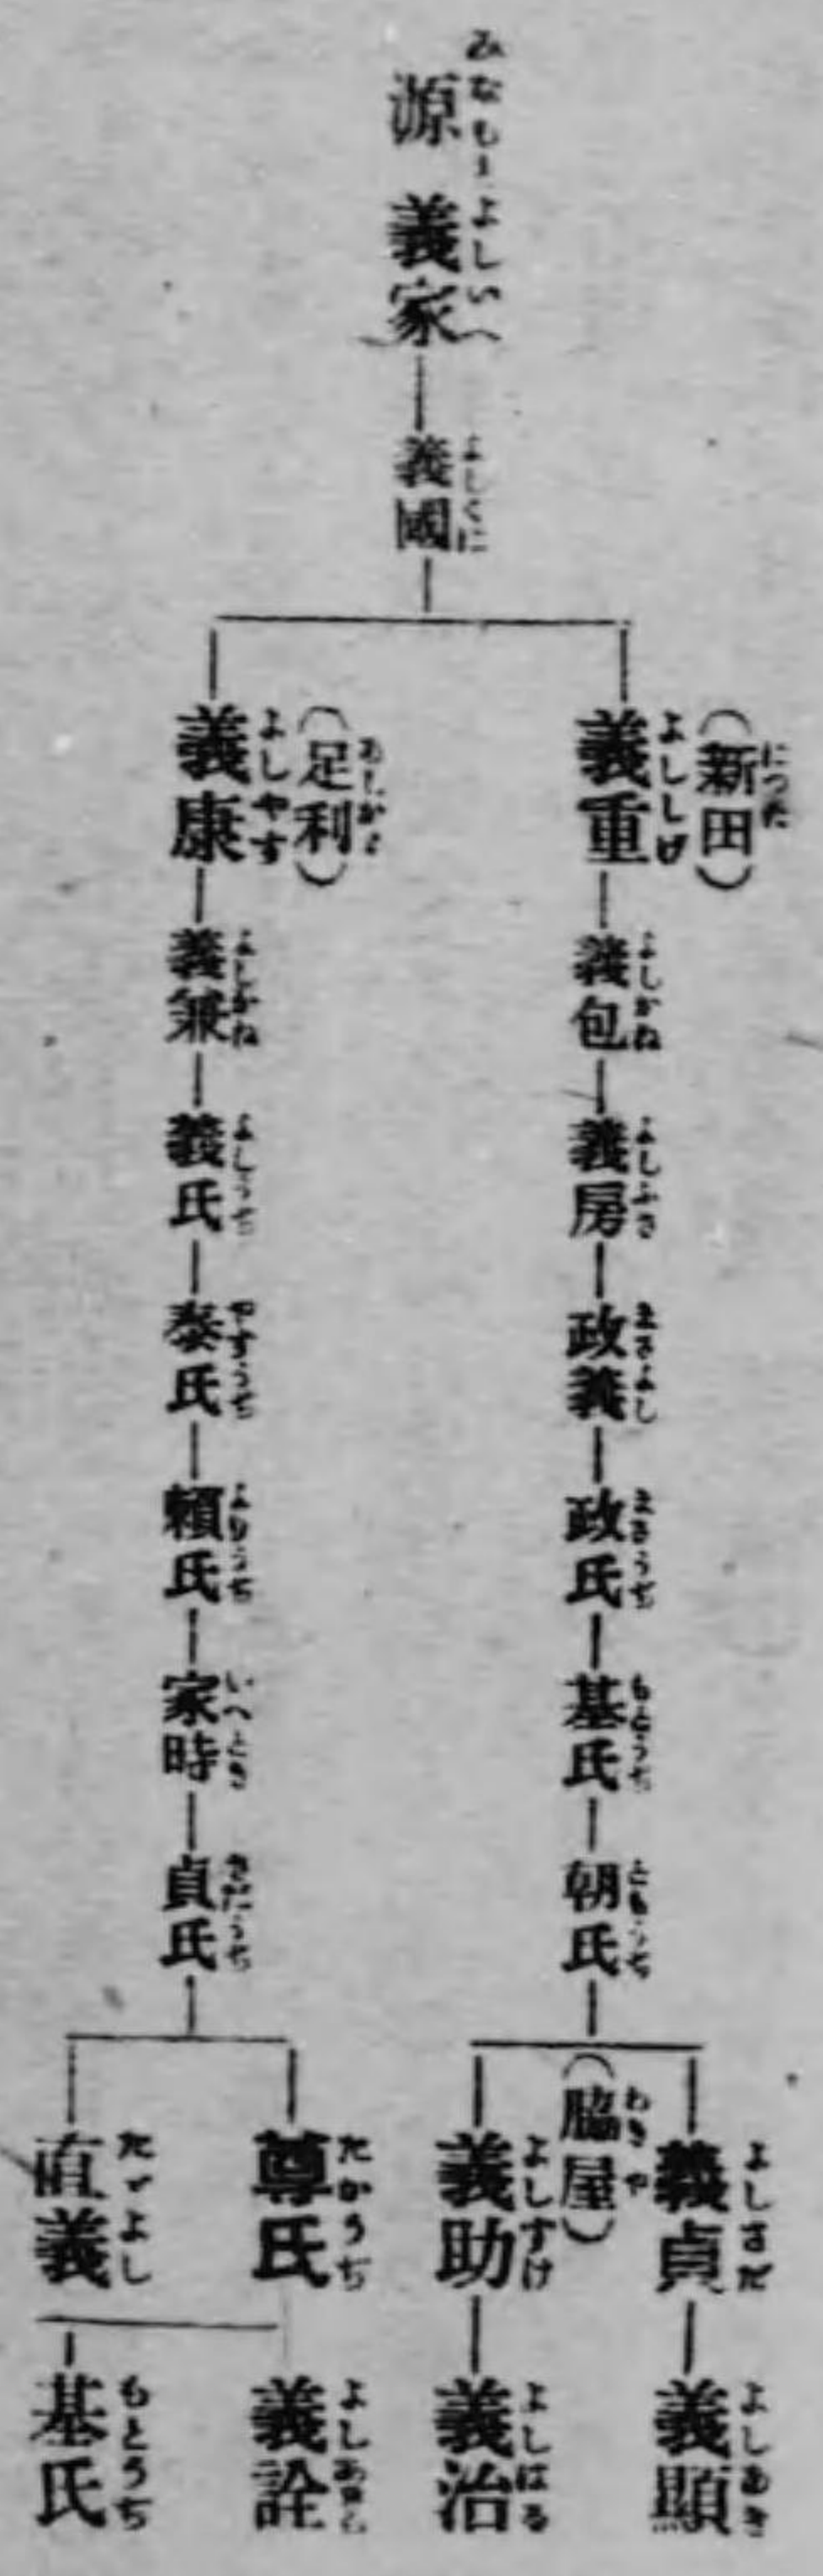 源 義家
みなもと よしいへ
義國
よしくに
(新田)
につた
義重
よししげ
義包
よしかね
義房
よしふさ
政義
まさよし
政氏
まさうぢ
基氏
もとうぢ
朝氏
ともうぢ
義貞
よしさだ
義顯
よしあき
(脇屋)
わきや
義助
よしすけ
義治
よしはる
(足利)
あしかゞ
義康
よしやす
義兼
よしかね
義氏
よしうぢ
泰氏
やすうぢ
賴氏
よりうぢ
家時
いへとき
貞氏
さだうぢ
尊氏
たかうぢ
義詮
よしあきら
直義
たゞよし
基氏
もとうぢ